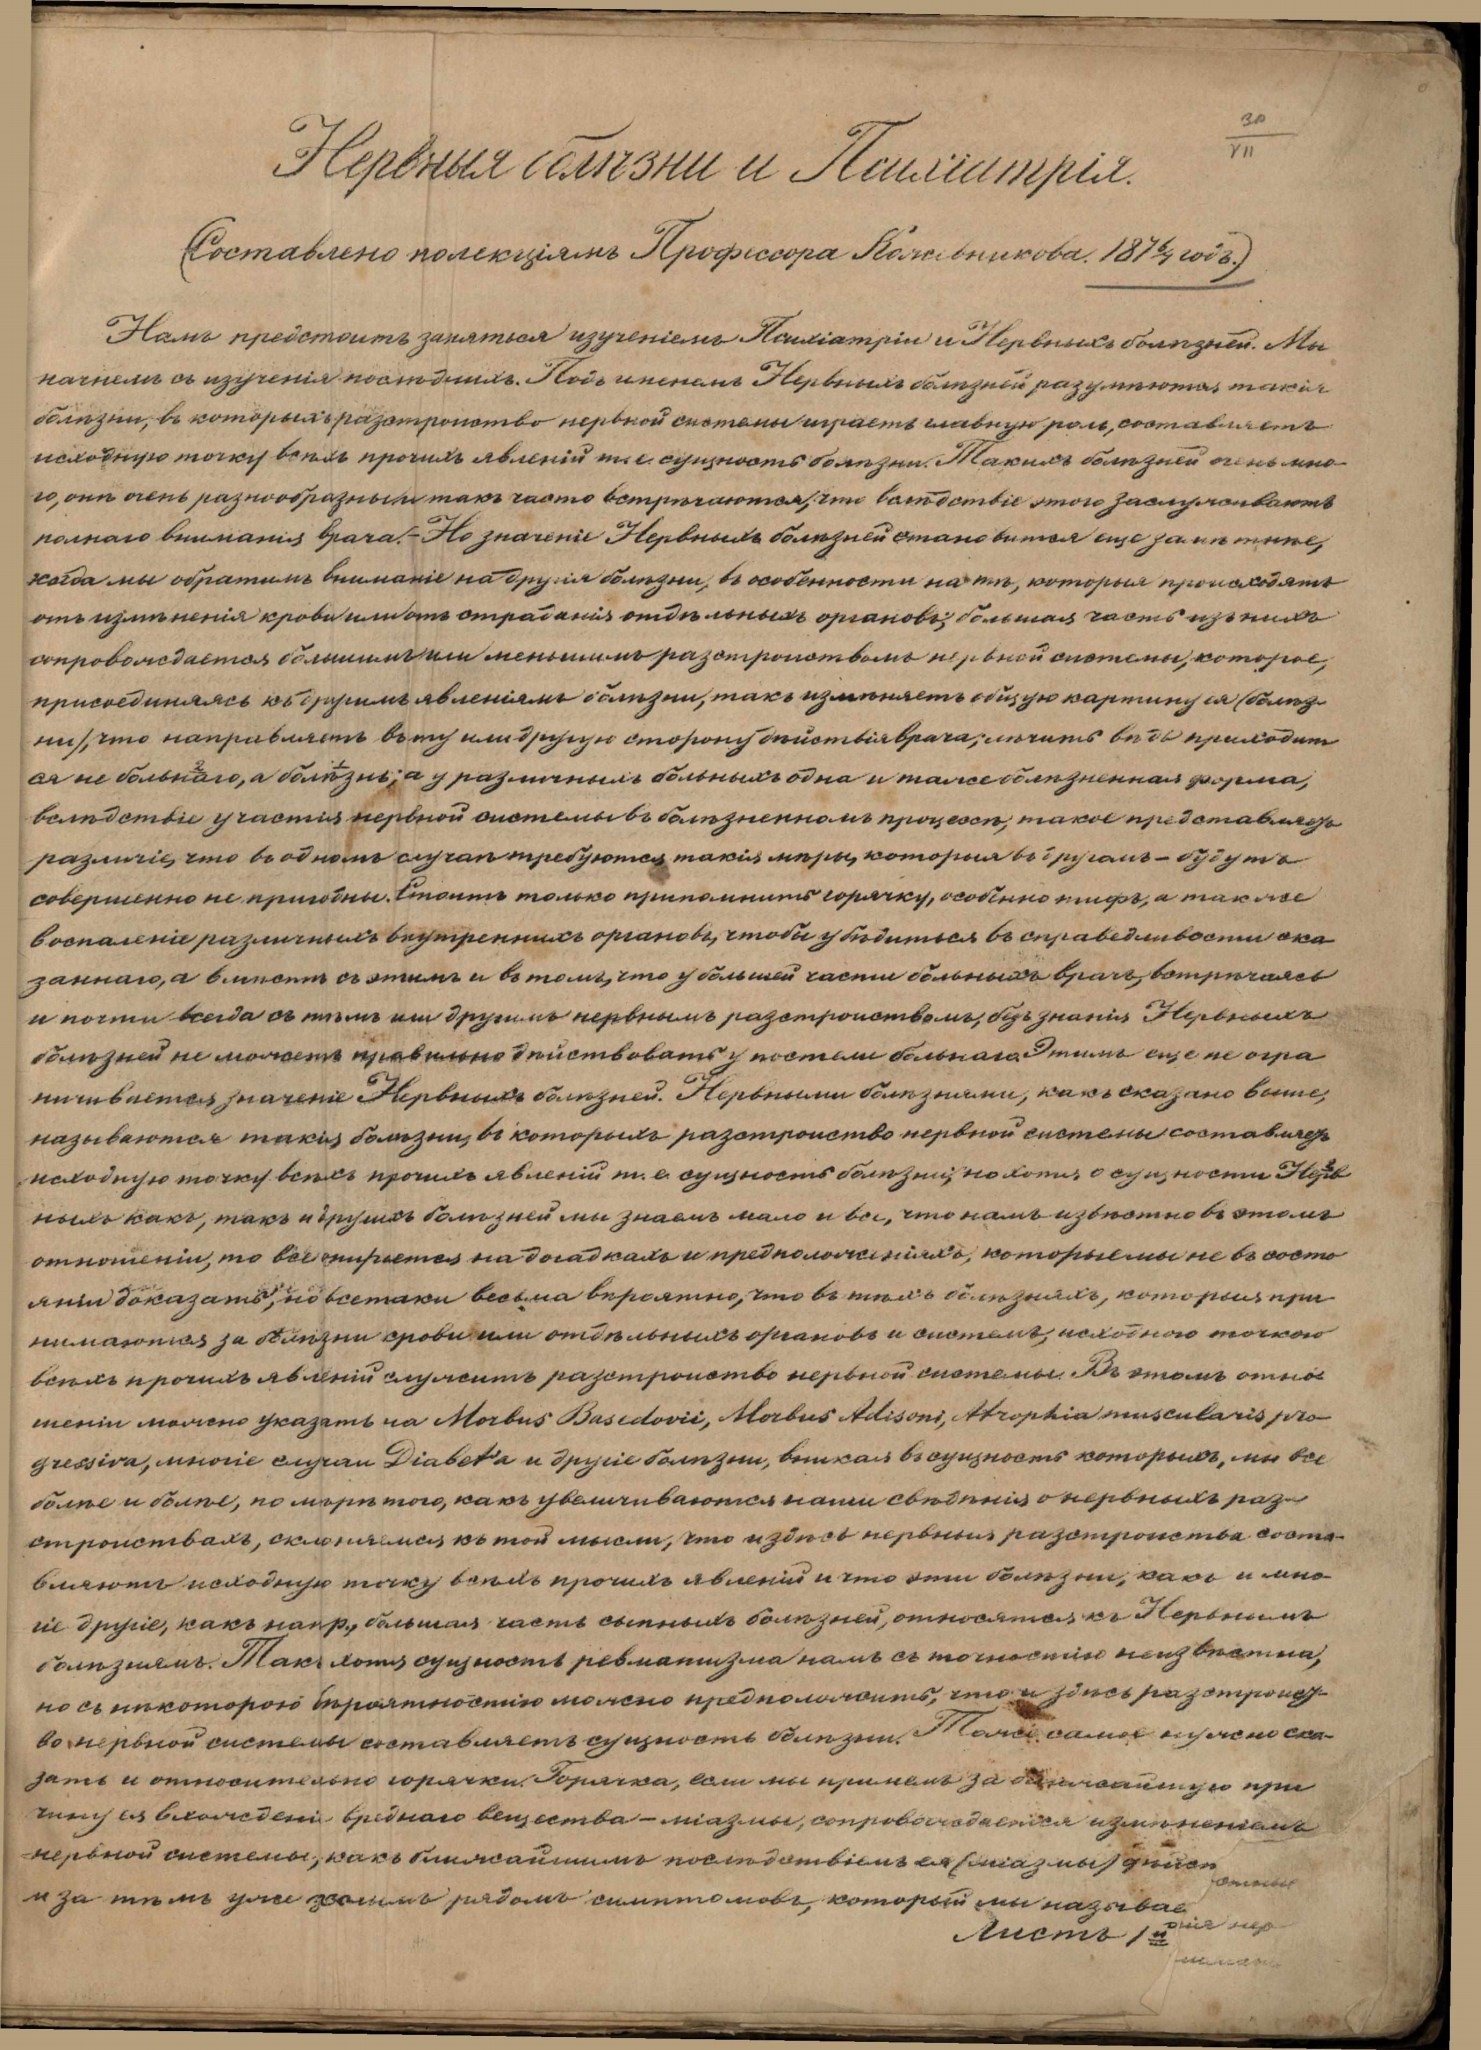 30
VII
Нервныя болѣзни и Психіатрія.
(Составлено по лекціямъ Профессора Кожевникова. 1876/7 годъ.)
Намъ предстоитъ заняться изученіемъ Психіатріи и Нервныхъ болѣзней. Мы
начнемъ съ изученія послѣднихъ. Подъ именемъ Нервныхъ болѣзней разумѣются такія
болѣзни, въ которыхъ разстройство нервной системы играетъ главную роль, составляетъ
исходную точку всѣхъ прочихъ явленій т. е. сущность болѣзни. Такихъ болѣзней очень мно-
го, онѣ очень разнообразны и такъ часто встрѣчаются, что вслѣдствіе этого заслуживаютъ
полнаго вниманія врача. – Но значеніе Нервныхъ болѣзней становится еще замѣтнѣе,
когда мы обратимъ вниманіе на другія болѣзни, въ особенности на тѣ, которыя происходятъ
отъ измѣненія крови или отъ страданія отдѣльныхъ органовъ; большая часть изъ нихъ
сопровождается большимъ или меньшимъ разстройствомъ нервной системы, которое,
присоединяясь къ другимъ явленіямъ болѣзни, такъ измѣняетъ общую картину ея (болѣз-
ни), что направляетъ въ ту или другую сторону дѣйствія врача; лѣчить вѣдь приходит
ся не больнаго, а болѣзнь; а у различныхъ больныхъ одна и таже болѣзненная форма,
вслѣдствіе участія нервной системы въ болѣзненномъ процессѣ, такое представляетъ
различіе, что въ одномъ случаѣ требуются такія мѣры, которыя въ другомъ – будутъ
совершенно не пригодны. Стоитъ только припомнить горячку, особенно тифъ, а также
воспаленіе различныхъ внутреннихъ органовъ, чтобы убѣдиться въ справедливости ска
заннаго, а вмѣстѣ съ этимъ и въ томъ, что у большей части больныхъ врачъ, встрѣчаясь
и почти всегда съ тѣмъ или другимъ нервнымъ разстройствомъ, безъ знанія Нервныхъ
болѣзней не можетъ правильно дѣйствовать у постели больнаго. Этимъ еще не огра
ничивается значеніе Нервныхъ болѣзней. Нервными болѣзнями, какъ сказано выше,
называются такія болѣзни, въ которыхъ разстройство нервной системы составляетъ
исходную точку всѣхъ прочихъ явленій т. е. сущность болѣзни; но хотя о сущности Нерв
ныхъ какъ, такъ и другихъ болѣзней мы знаемъ мало и все, что намъ извѣстно въ этомъ
отношеніи, то все опирается на догадкахъ и предположеніяхъ, которые мы не въ состо
яніи доказать, но всетаки весьма вѣроятно, что въ тѣхъ болѣзняхъ, которыя при
нимаются за болѣзни крови или отдѣльныхъ органовъ и системъ, исходною точкою
всѣхъ прочихъ явленій служитъ разстройство нервной системы. Въ этомъ отно
шеніи можно указать на Morbus Basedovii, Morbus Adisoni, Atrophia muscularis pro-
gressiva, многіе случаи Diabet'а и другіе болѣзни, вникая въ сущность которыхъ, мы все
болѣе и болѣе, по мѣрѣ того, какъ увеличиваются наши свѣдѣнія о нервныхъ раз-
стройствахъ, склоняемся къ той мысли, что и здѣсь нервныя разстройства соста-
вляютъ исходную точку всѣхъ прочихъ явленій и что эти болѣзни, какъ и мно-
гіе другіе, какъ напр., большая часть сыпныхъ болѣзней, относятся къ Нервнымъ
болѣзнямъ. Такъ хотя сущность ревматизма намъ съ точностію неизвѣстна,
но съ нѣкоторою вѣроятностію можно предположить, что и здѣсь разстройст-
во нервной системы составляетъ сущность болѣзни. Тоже самое нужно ска-
зать и относительно горячки. Горячка, если мы примемъ за ближайшую при
чину ея вхожденіе вреднаго вещества – міазмы, сопровождается измѣненіемъ
нервной системы, какъ ближайшимъ послѣдствіемъ ея (міазмы) дѣйст
и за тѣмъ уже цѣлымъ рядомъ симптомовъ, который мы называе
Листъ 1й